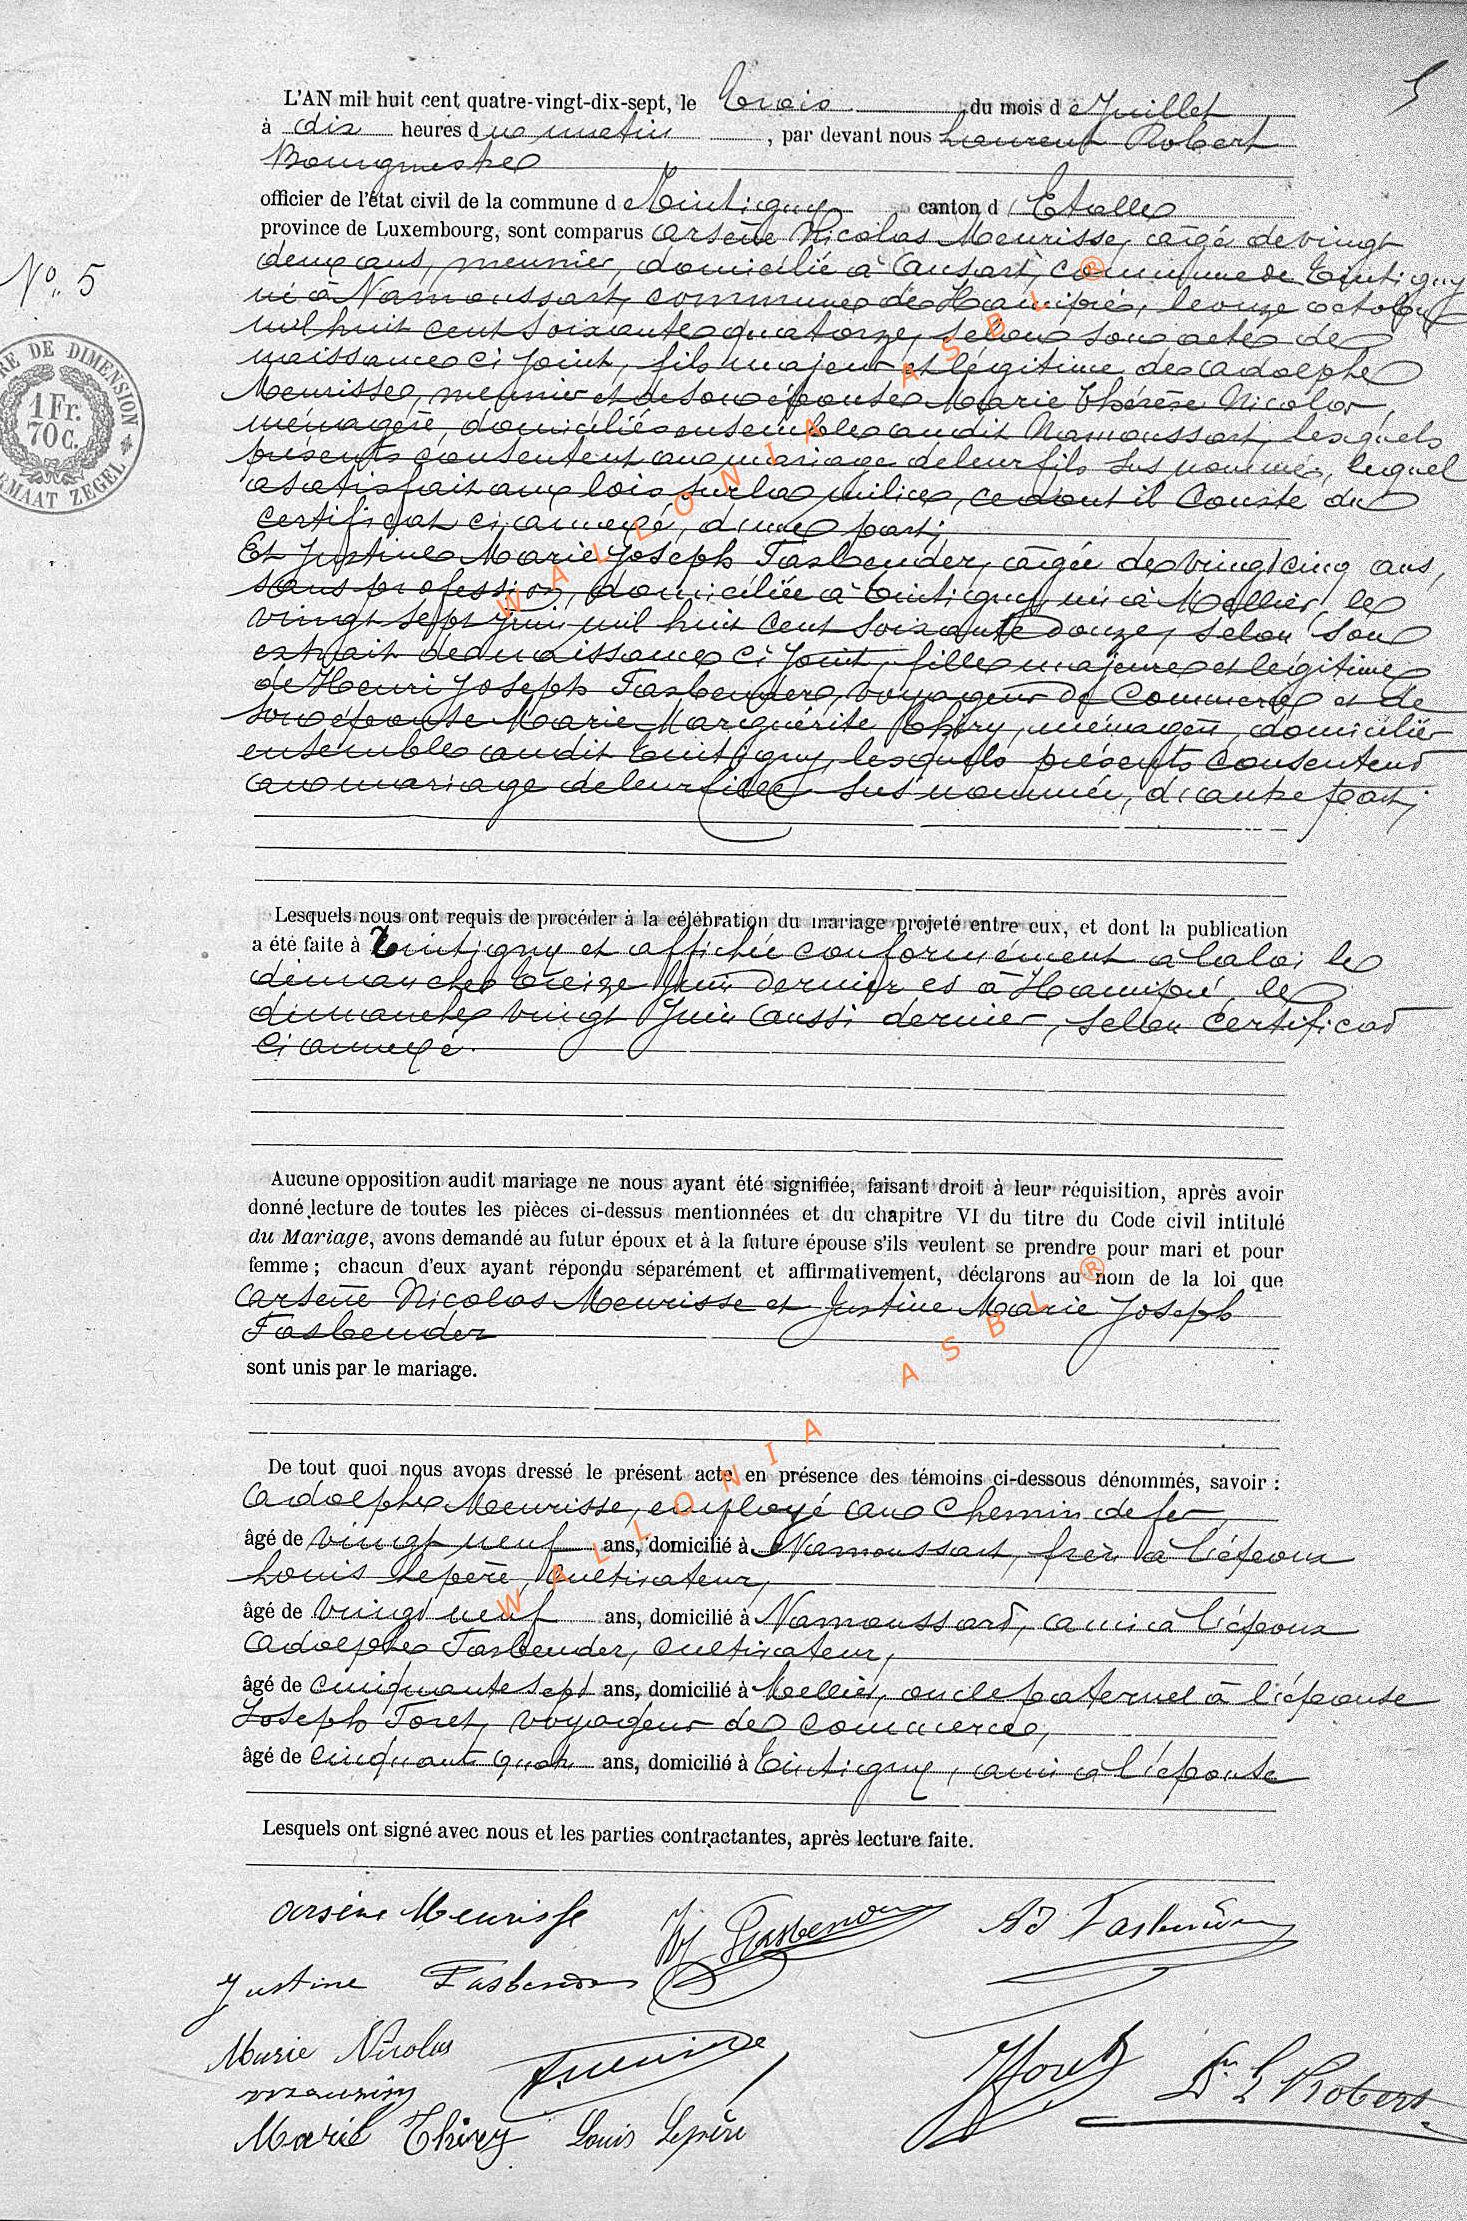 5
L'AN mil huit cent quatre-vingt-dix-sept, le trois du mois de Juillet
à dix heures du matin, par devant nous Laurent Robert
Bourgmestre
officier de l'état civil de la commune de Tintigny canton d'Etalle
province de Luxembourg, sont comparus Arsène Nicolas Meurisse, âgé de vingt
deux ans, meunier, domicilié à Ansart, commune de Tintigny
N° 5
né à Namoussart, commune de Hamipré, le onze octobre
mil huit cent soixante quatorze, selon son acte de
naissance ci joint, fils majeur et légitime de Adolphe
Meurisse, meunier et de son épouse Marie Thérèse Nicolas,
ménagère, domiciliés ensemble audit Namoussart, lesquels
présents consentent au mariage de leur fils sus nommé, lequel
a satisfait aux lois sur la milice, ce dont il conste du
certificat ci annexé, d'une part;
Et Justine Marie Joseph Fasbender, âgée de vingt cinq ans,
sans profession, domiciliée à Tintigny, née à Mellier, le
vingt sept juin mil huit cent soixante douze, selon son
extrait de naissance ci joint, fille majeure et légitime
de Henri Joseph Fasbender, voyageur de commerce et de
son épouse Marie Marguérite Thiry, ménagère, domiciliés
ensemble audit Tintigny, lesquels présents consentent
au mariage de leur fille sus nommée, d'autre part;
TIMBRE DE DIMENSION
1 Fr.
70 C.
FORMAAT ZEGEL
Lesquels nous ont requis de procéder à la célébration du mariage projeté entre eux, et dont la publication
a été faite à Tintigny et affichée conformément à la loi le
dimanche treize Juin dernier et à Hamipré, le
dimanche vingt Juin aussi dernier, sellon certificat
ci annexé.
Aucune opposition audit mariage ne nous ayant été signifiée, faisant droit à leur réquisition, après avoir
donné lecture de toutes les pièces ci-dessus mentionnées et du chapitre VI du titre du Code civil intitulé
du Mariage, avons demandé au futur époux et à la future épouse s'ils veulent se prendre pour mari et pour
femme ; chacun d'eux ayant répondu séparément et affirmativement, déclarons au nom de la loi que
Arsène Nicolas Meurisse et Justine Marie Joseph
Fasbender
sont unis par le mariage.
De tout quoi nous avons dressé le présent acte en présence des témoins ci-dessous dénommés, savoir :
Adolphe Meurisse, employé au chemin de fer
âgé de vingt neuf ans, domicilié à Namoussart, frère à l'époux
Louis Lepère, cultivateur,
âgé de vingt neuf ans, domicilié à Namoussart, ami à l'époux
Adolphe Fasbender, cultivateur,
âgé de cinquante sept ans, domicilié à Mellier, oncle paternel à l'épouse
Joseph Foret, voyageur de commerce,
âgé de cinquante quatre ans, domicilié à Tintigny, ami à l'épouse
Lesquels ont signé avec nous et les parties contractantes, après lecture faite.
Arsène Meurisse
Hj Fasbender
Ad Fasbender
Justine Fasbender
Marie Nicolas
A Meurisse
JForet
L Robert
Meurisse
Marie Thiry
Louis Lepère
WALLONIA ASBL ®
WALLONIA ASBL ®